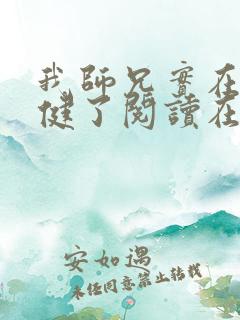 我師兄實在
健了閱讀在
安如遇
未经同意禁止转载